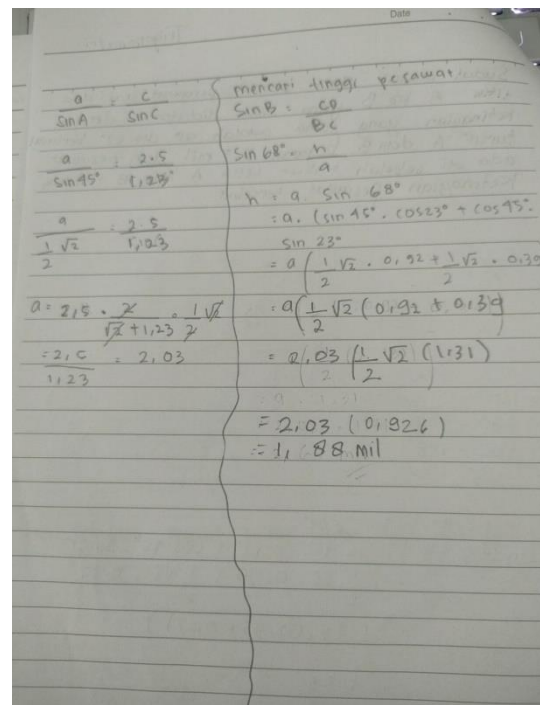 Date
a/Sin A = c/Sin C
a/Sin 45° = 2.5/1,23
a/(1/2 √2) = 2.5/1,23
a = 2,5 · 2/(√2 + 1,23) · 1/2 √2
= 2,5/1,23 = 2,03
mencari tinggi pesawat
Sin B = CD/BC
Sin 68° = h/a
h = a Sin 68°
= a. (sin 45°. cos 23° + cos 45°.
sin 23°
= a (1/2 √2 . 0,92 + 1/2 √2 . 0,39
= a (1/2 √2 (0,92 + 0,39)
= 2,03 (1/2 √2 (1.31)
= 2,03 (0,926)
= 1,88 mil